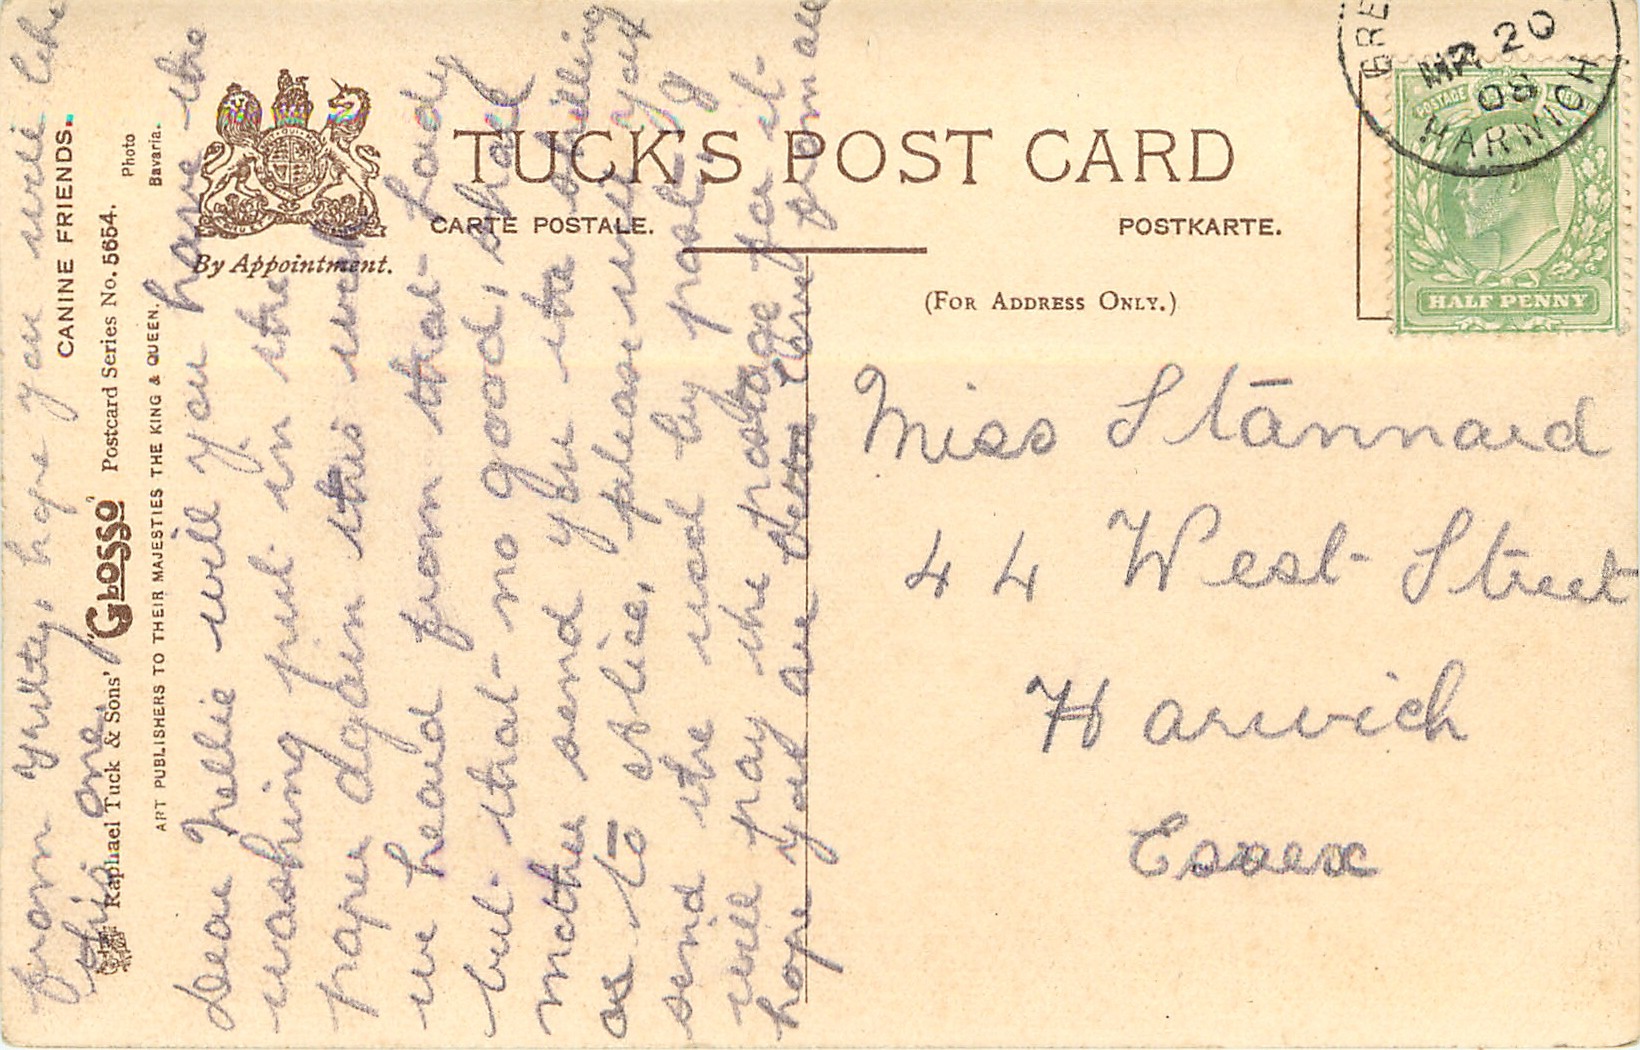 TUCK'S POST CARD
CARTE POSTALE.
POSTKARTE.
By Appointment.
(FOR ADDRESS ONLY.)
BRE
MR 20
08
HARWICH
POSTAGE
HALF PENNY
Miss Stannard
44 West Street
Harwich
Essex
CANINE FRIENDS.
Raphael Tuck & Sons' "GLOSSO" Postcard Series No. 5654.
Photo
Bavaria.
ART PUBLISHERS TO THEIR MAJESTIES THE KING & QUEEN.
Dear Nellie will you have the
washing put in the
paper again this week
we heard from that lady
but that no good, shall
mother send you the shilling
as to Alice, please will you
send the used by post, &
will pay the postage for it
hope you are love from all
from hope you will like
this one.